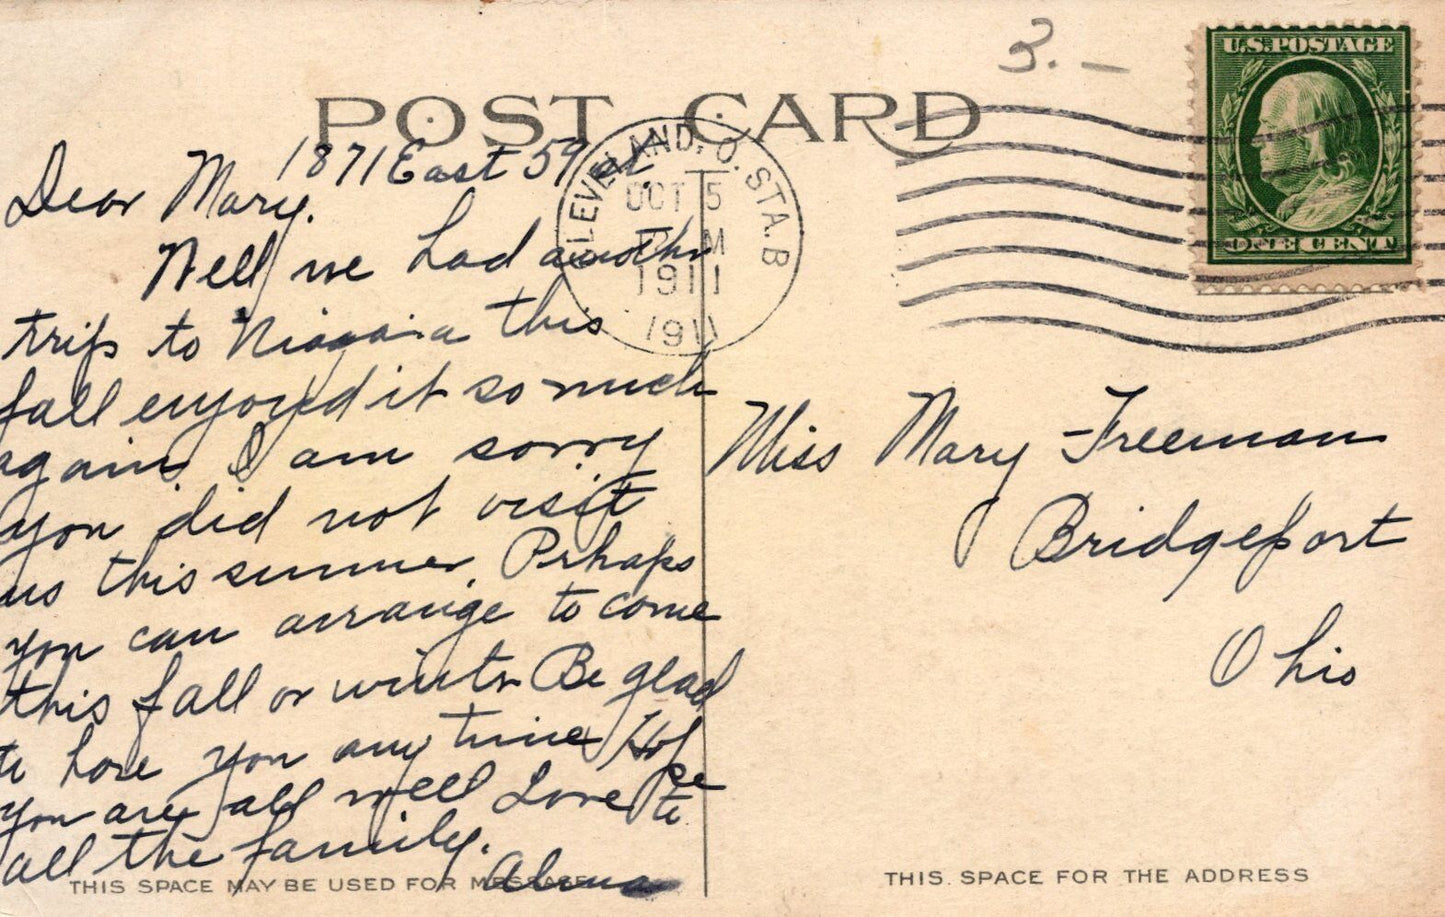 3. —
U.S. POSTAGE
ONE CENT
POST CARD
CLEVELAND, O. STA. B
OCT 5
M
1911
1911
1871 East 59 st.
Dear Mary.
Well we had another
trip to Niagara this
fall enjoyed it so much
again. I am sorry
you did not visit
us this summer. Prhaps
you can arrange to come
this fall or winter Be glad
to have you any time Hope
you are all well Love to
all the family.
THIS SPACE MAY BE USED FOR MESSAGE
Miss Mary Freeman
Bridgeport
Ohio
THIS SPACE FOR THE ADDRESS